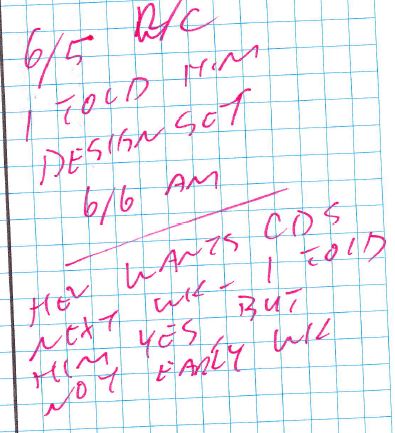 6/5 R/C
I TOLD HIM
DESIGN SET
6/6 AM
WANTS CDS
NEXT WK - I TOLD
HIM YES, BUT
NOT EARLY WK